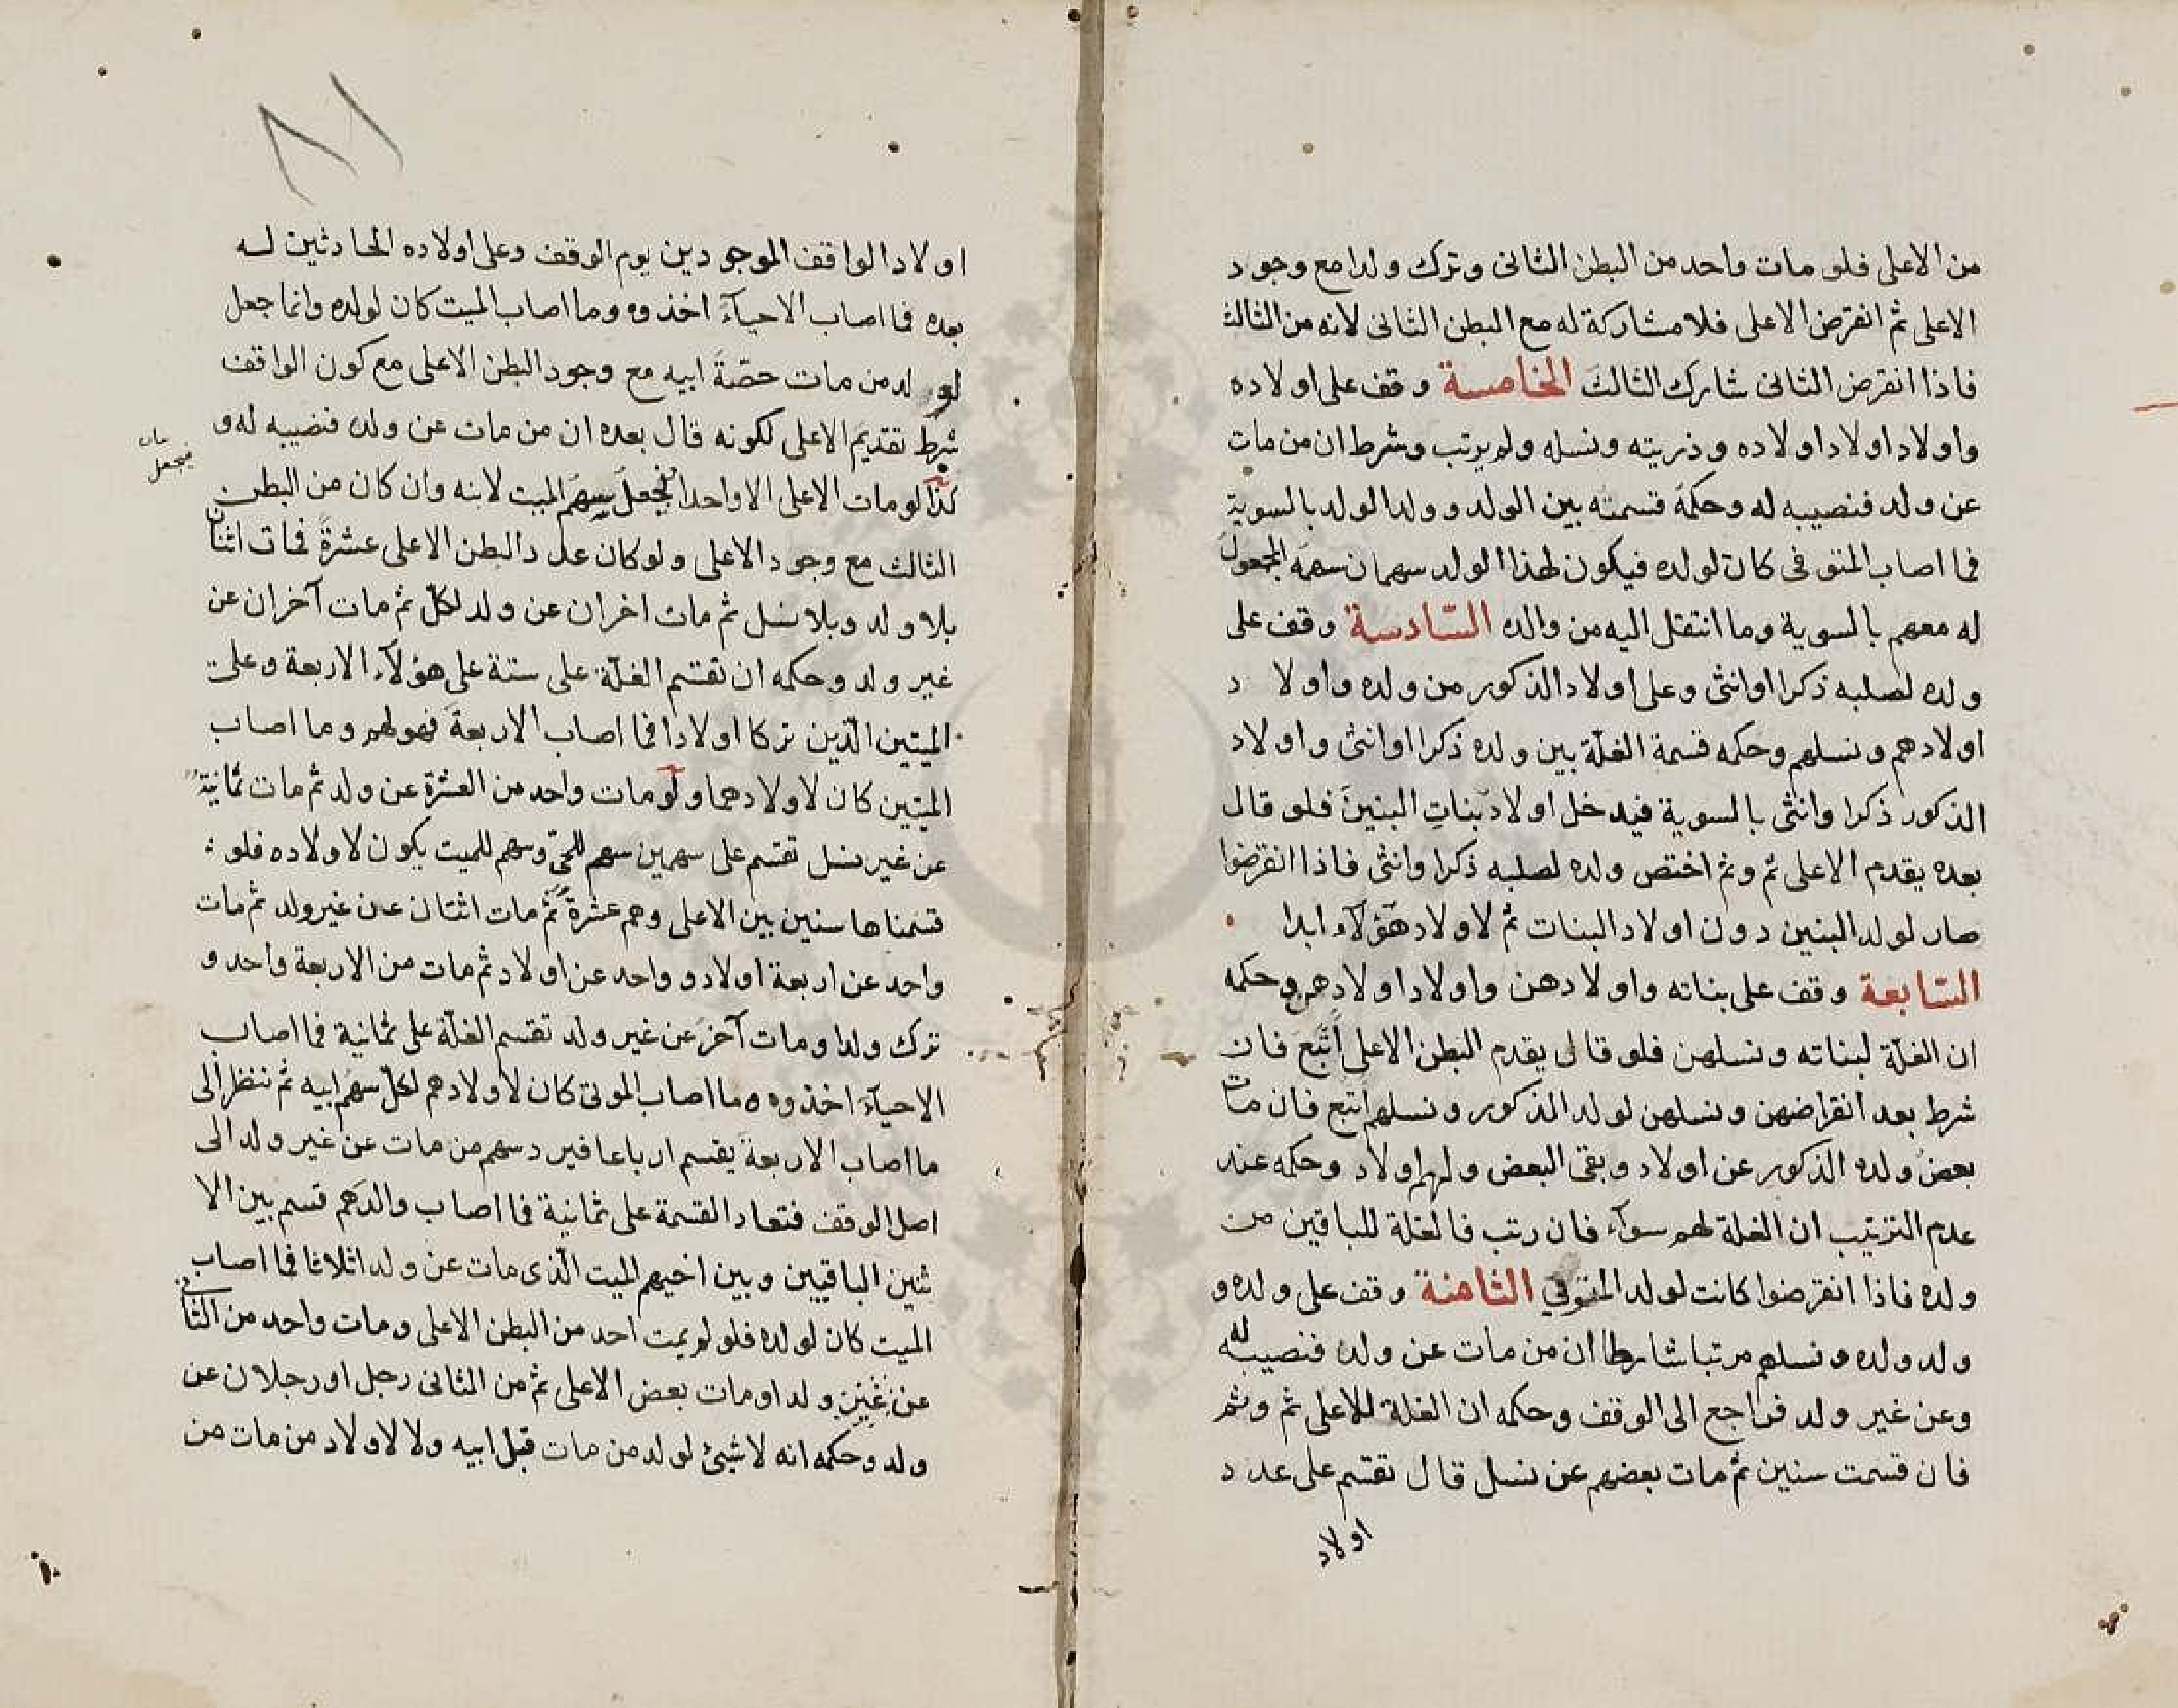 من الاعلى فلو مات واحد من البطن الثانى وترك ولدا مع وجود
الاعلى ثم انقرض الاعلى فلا مشاركة له مع البطن الثانى لانه من الثالث
فاذا انقرض الثانى شارك الثالث الخامسة وقف على اولاده
واولاد اولاد اولاده وذريته ونسله ولم يرتب وشرط ان من مات
عن ولد فنصيبه له وحكمه قسمته بين الولد وولد الولد بالسوية
فما اصاب المتوفى كان لولده فيكون لهذا الولد سهمان سهمه المجعول
له معهم بالسوية وما انتقل اليه من والده السّادسة وقف على
ولده لصلبه ذكرا اوانثى وعلى اولاد الذكور من ولده واولا د
اولادهم ونسلهم وحكمه قسمة الغلّة بين ولده ذكرا اوانثى واولاد
الذكور ذكرا وانثى بالسوية فيدخل اولاد بناتِ البنينَ فلو قال
بعده يقدم الاعلى ثم وثم اختص ولده لصلبه ذكرا وانثى فاذا انقرضوا
صار لولد البنين دون اولاد البنات ثم لاولاد هؤلآء ابدا
السّابعة وقف على بناته واولادهن واولاد اولادهن وحكمه
ان الغلّة لبناته ونسلهن فلو قال يقدم البطن الاعلى اتّبع فان
شرط بعد انقراضهن ونسلهن لولد الذكور ونسلهم اتبع فان مات
بعض ولده الذكور عن اولاد وبقى البعض ولهم اولاد وحكمه عند
عدم الترتيب ان الغلة لهم سوآء فان رتب فالغلة للباقين من
ولده فاذا انقرضوا كانت لولد المتوفى الثامنة وقف على ولده و
ولد ولده ونسلهم مرتبا شارطا ان من مات عن ولد فنصيبه له
وعن غير ولد فراجع الى الوقف وحكمه ان الغلة للاعلى ثم وثم
فان قسمت سنين ثم مات بعضهم عن نسل قال تقسم على عدد
اولاد
٨١
اولاد الواقف الموجودين يوم الوقف وعلى اولاده الحادثين له
بعده فما اصاب الاحيآء اخذوه وما اصاب الميت كان لولده وانما جعل
لولد من مات حصّة ابيه مع وجود البطن الاعلى مع كون الواقف
شرط تقديم الاعلى لكونه قال بعده ان من مات عن ولد فنصيبه له و
كذا لو مات الاعلى الا واحدا فيجعل سهم الميت لابنه وان كان من البطن
فيجعل
الثالث مع وجود الاعلى ولو كان عدد البطن الاعلى عشرة فمات اثنان
بلا ولد وبلا نسل ثم مات اخران عن ولد لكلّ ثم مات آخران عن
غير ولد وحكمه ان تقسم الغلّة على ستة على هؤلآء الاربعة وعلى
الميتين الّذين تركا اولادا فما اصاب الاربعة فهو لهم وما اصاب
الميتين كان لاولادهما ولو مات واحد من العشرة عن ولد ثم مات ثمانية
عن غير نسل تقسم على سهمين سهم للحىّ وسهم للميت يكون لاولاده فلو
قسمناها سنين بين الاعلى وهم عشرة ثم مات اثنان عن غير ولد ثم مات
واحد عن اربعة اولاد وواحد عن اولاد ثم مات من الاربعة واحد و
ترك ولدا ومات آخر عن غير ولد تقسم الغلّة على ثمانية فما اصاب
الاحيآء اخذوه وما اصاب الموتى كان لاولادهم لكلّ سهم ابيه ثم ننظر الى
ما اصاب الاربعة يقسم ارباعا فيرد سهم من مات عن غير ولد الى
اصل الوقف فتعاد القسمة على ثمانية فما اصاب والدهم قسم بين الا
ثنين الباقيين وبين اخيهم الميت الّذى مات عن ولد اثلاثا فما اصاب
الميت كان لولده فلو لم يمت احد من البطن الاعلى ومات واحد من الثانى
عن غير ولد او مات بعض الاعلى ثم من الثانى رجل او رجلان عن
ولد وحكمه انه لا شيئ لولد من مات قبل ابيه ولا لاولاد من مات من